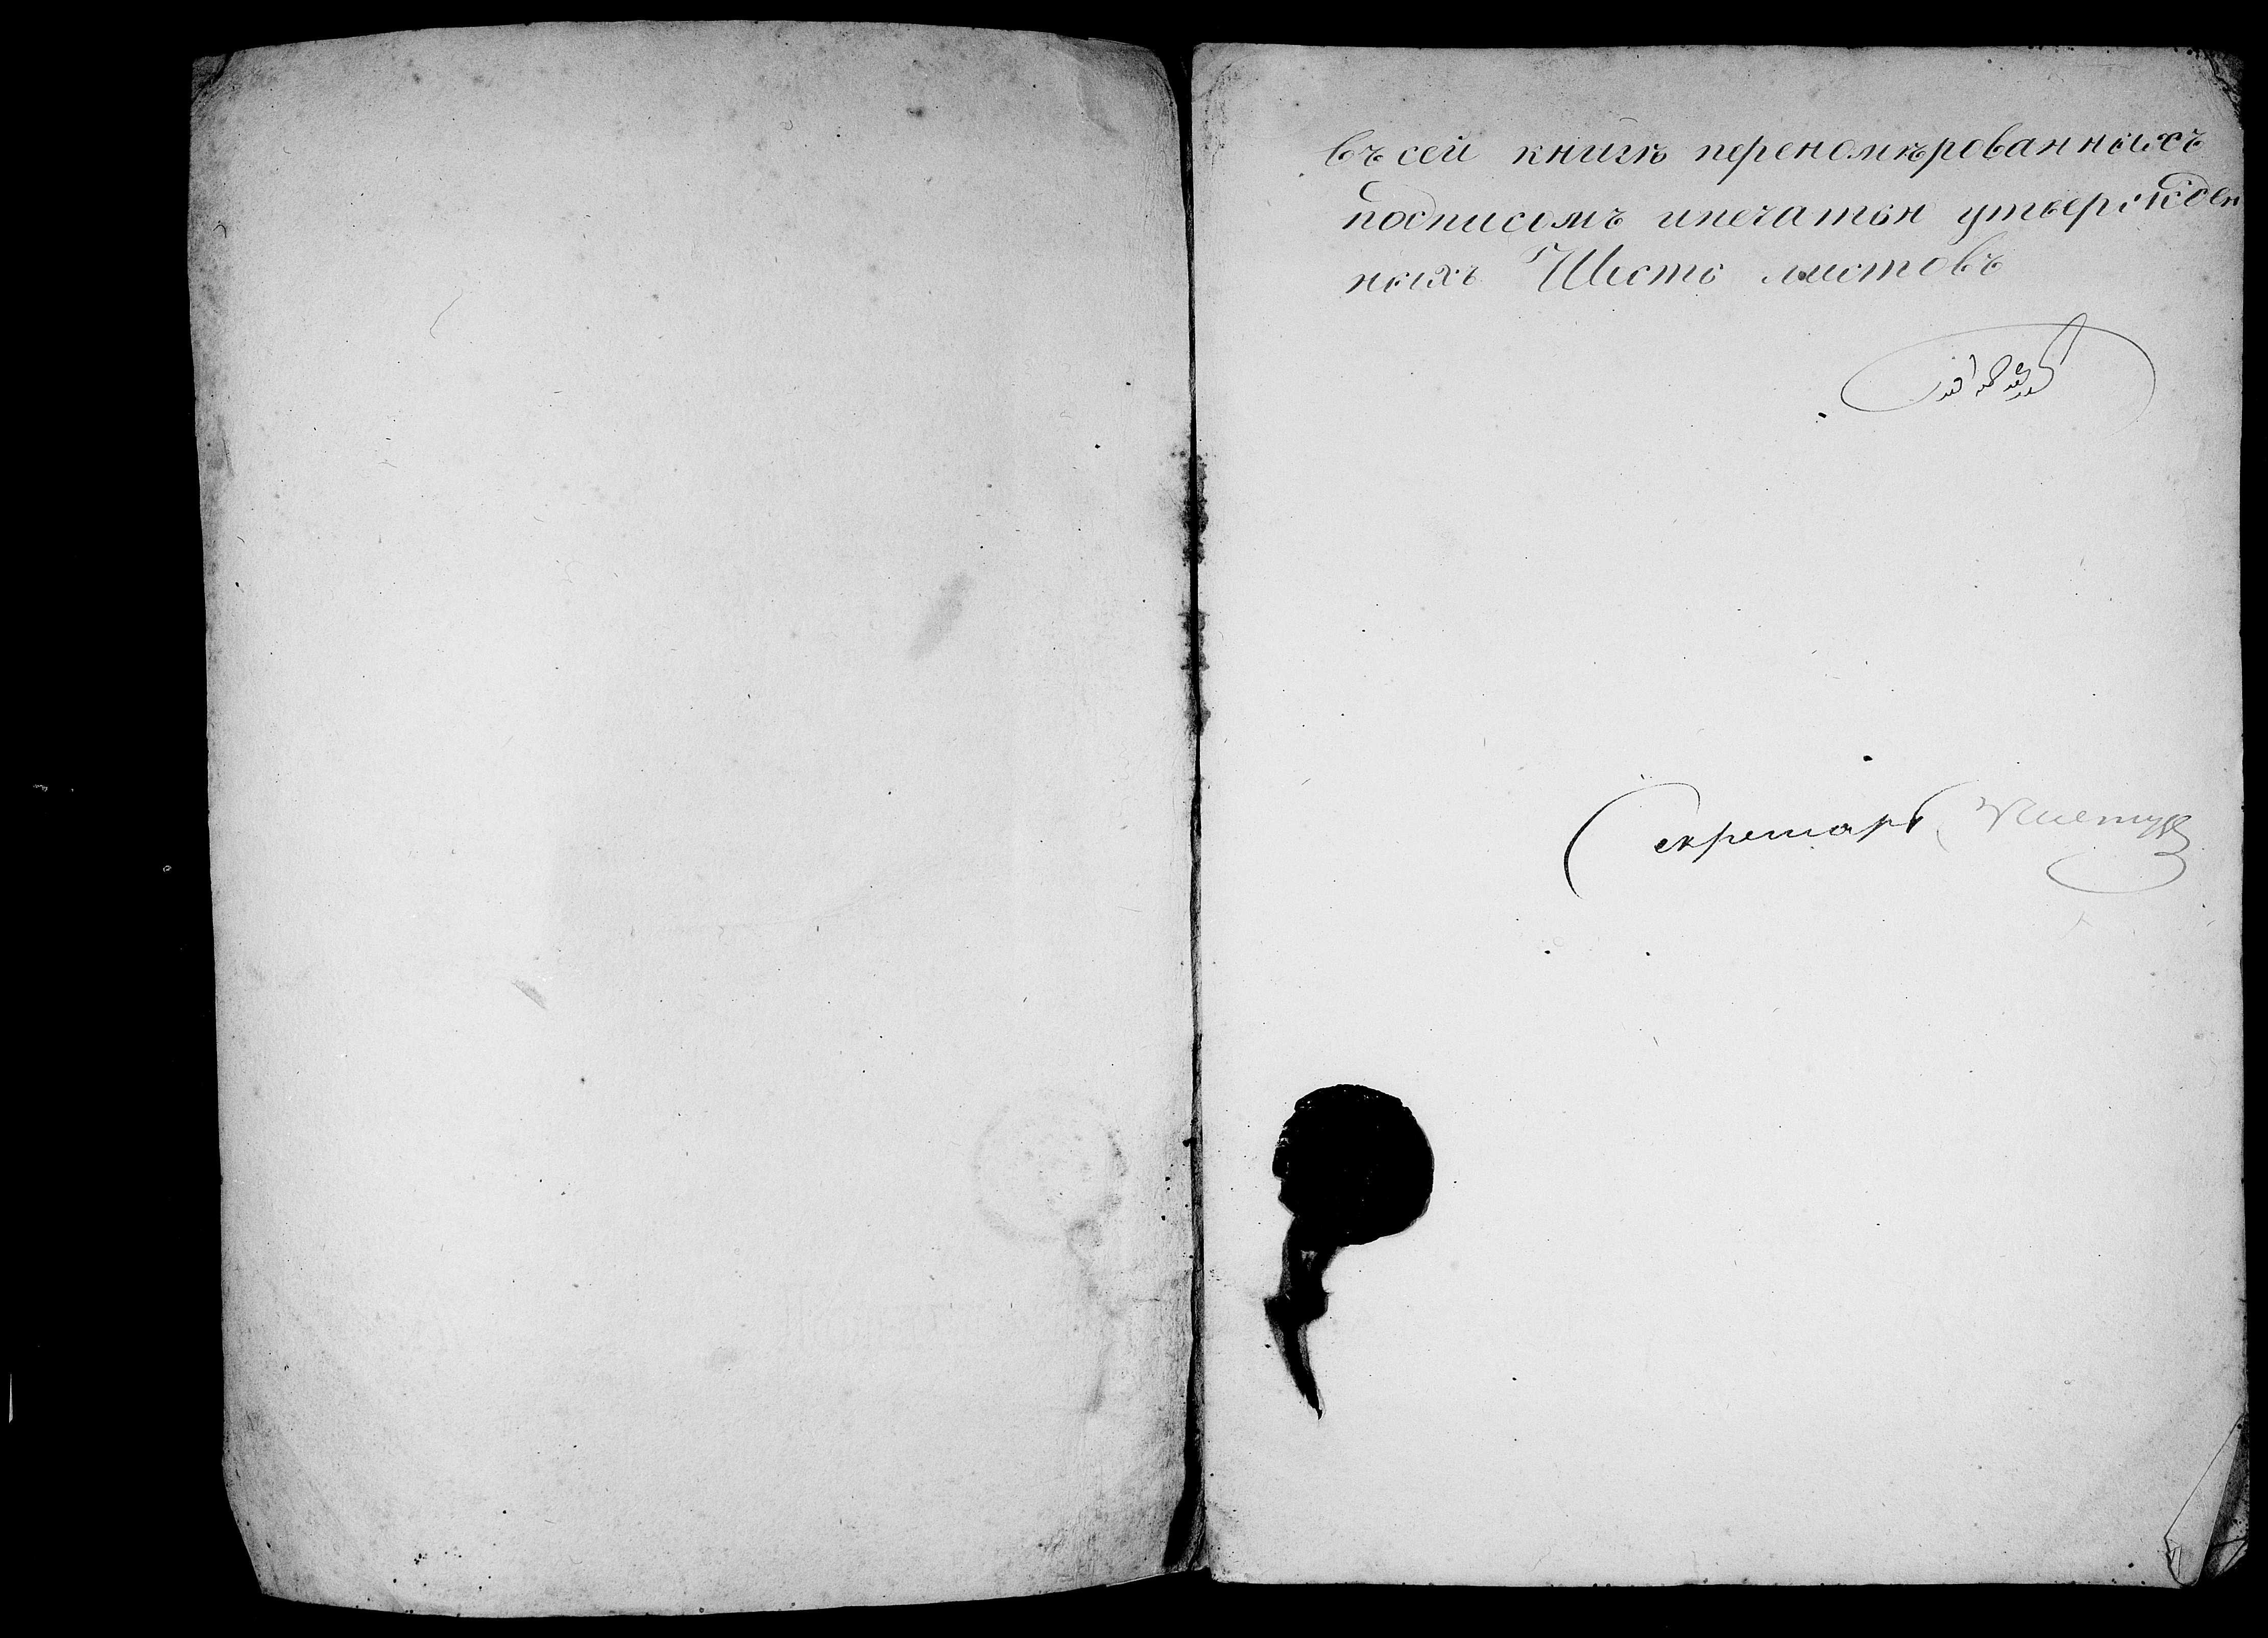 въ сей книгѣ переномѣрованныхъ
подписомъ ипечатьн утвержден
ныхъ Шесть листовъ
Секретарь